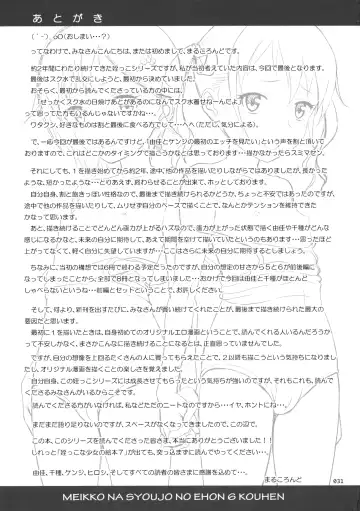 あとがき
( ´-`).oO(おしまい…?)
ってなわけで、みなさんこんにちは、または初めまして、まるころんどです。
約2年間にわたり続けてきた姪っこシリーズですが、私が当初考えていた内容は、今回で最後となります。
最後はスク水で乱交にしようと、最初から決めていました。
おそらく、最初から読んでくださっている方の中には、
「せっかくスク水の日焼けあとがあるのになんでスク水着せねーんだよ」
って思ってた方もいるんじゃないですかね…。
ワタクシ、好きなものは割と最後に食べる方でして…へへ(ただし、気分による)。
で、一応今回が最後ではあるんですけど、「由佳とケンジの最初のエッチを見たい」という声を割と頂いて
おりますので、これはどこかのタイミングで描こうかなとは思っております…描かなかったらスミマセン。
それにしても、1を描き始めてから約2年、途中、他の作品を描いたりしながらではありましたが、長かった
ような、短かったような…とりあえず、終わらせることが出来て、ホッとしております。
自分自身、割と飽きっぽい性格なので、最後まで描き続けられるかどうか、ちょっと不安ではあったのですが、
途中で他の作品を描いたりして、ムリせず自分のペースで描くことで、なんとかテンションを維持できた
かなって思います。
あと、描き続けることでどんどん画力が上がるハズなので、画力が上がった状態で描く由佳や千種がどんな
感じになるかなと、未来の自分に期待して、あえて期間を空けて描いていたというのもあります…思ったほど
上がってなくて、軽く自分に失望していますが…ここはさらに未来の自分に期待するとしましょう。
ちなみに、当初の構想では6冊で終わる予定だったのですが、自分の想定の甘さから5と6が前後編に
なってしまったことから、全部で8冊となってしまいました…おかげで今回は由佳と千種がほとんど
しゃべらないという…前編とセットということで、お許しください。
そして、何より、新刊を出すたびに、みなさんが買い続けてくれたことが、最後まで描き続けられた最大の
要因だと思います。
最初に1を描いたときは、自身初めてのオリジナルエロ漫画ということで、読んでくれる人いるんだろうか
って不安しかなく、まさかここまで描き続けることになるとは、正直思っていませんでした。
ですが、自分の想像を上回るたくさんの人に買ってもらえたことで、2以降も描こうという気持ちになりまし
たし、オリジナル漫画を描くことの楽しさを覚えました。
自分自身、この姪っこシリーズには成長させてもらったという気持ちが強いのですが、それもこれも、読んで
くださるみなさんがいるからこそです。
読んでくださる方がいなければ、私などただのニートなのですから…イヤ、ホントにね…。
で、まだまだ語り足りないのですが、スペースがなくなってきたので、この辺で。
この本、このシリーズを読んでくださった皆さま、本当にありがとうございました!!
しれっと「姪っこな少女の絵本7」が出ても、突っ込まずに読んでやってください…。
由佳、千種、ケンジ、ヒロシ、そしてすべての読者の皆さまに感謝を込めて…。
まるころんど
031
MEIKKO NA SYOUJO NO EHON 6 KOUHEN